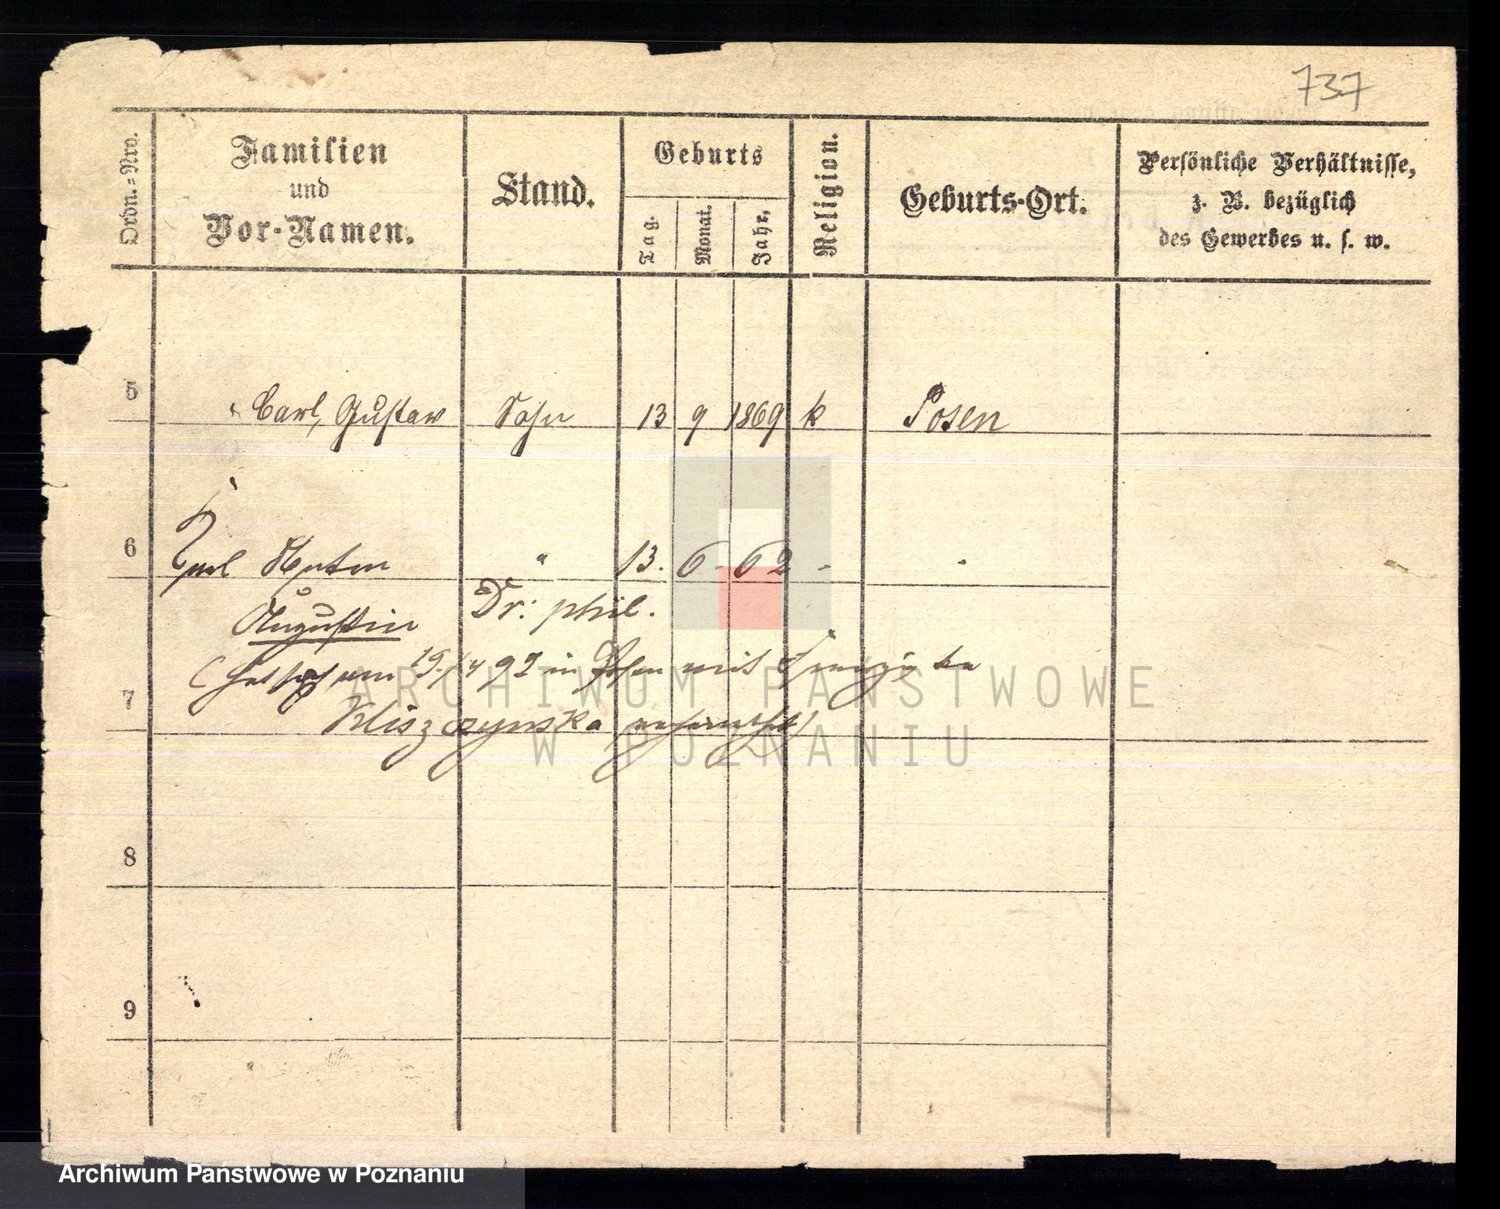 737
Ordn.=Nro.
Familien
und
Vor-Namen.
Stand.
Geburts
Tag.
Monat.
Jahr.
Religion.
Geburts-Ort.
Persönliche Verhältnisse,
z. B. bezüglich
des Gewerbes u. s. w.
5 Carl, Gustav Sohn 13 9 1869 k Posen
6 Karl Anton " 13. 6 62 - -
Augustin Dr: phil.
(hat sich am 19./4 92 in Posen mit
7 Kliszczynska verheirathet)
8
9
ARCHIWUM PAŃSTWOWE
W POZNANIU
Archiwum Państwowe w Poznaniu